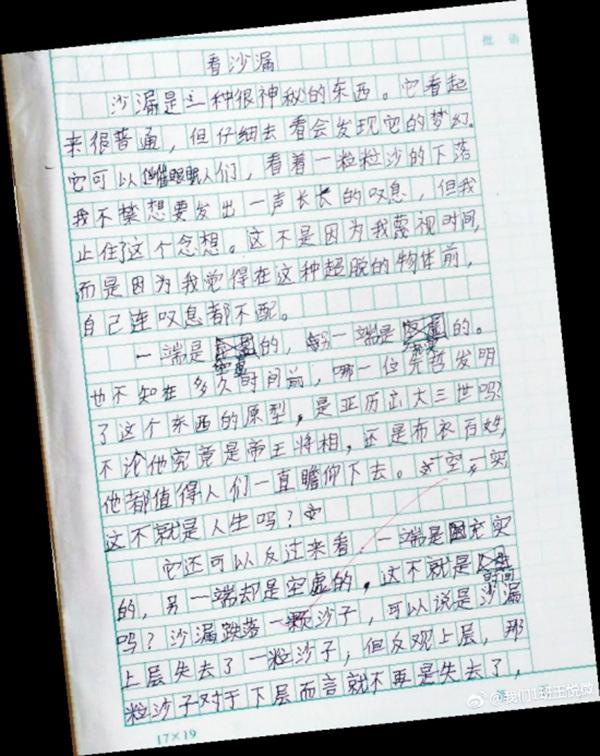 批语
看沙漏
沙漏是一种很神秘的东西。它看起
来很普通，但仔细去看会发现它的梦幻。
它可以催眠人们，看着一粒粒沙的下落
我不禁想要发出一声长长的叹息，但我
止住了这个念想。这不是因为我蔑视时间，
而是因为我觉得在这种超脱的物体前，
自己连叹息都不配。
一端是空虚的，另一端是充实的。
也不知在多久时间前，哪一位先哲发明
了这个东西的原型，是亚历山大三世吗？
不论他究竟是帝王将相，还是布衣百姓，
他都值得人们一直瞻仰下去。一空一实
这不就是人生吗？
它还可以反过来看，一端是充实
的，另一端却是空虚的，这不就是时间
吗？沙漏跌落一颗沙子，可以说是沙漏
上层失去了一粒沙子，但反观上层，那
粒沙子对于下层而言就不再是失去了，
17×19
@我们1班王悦微